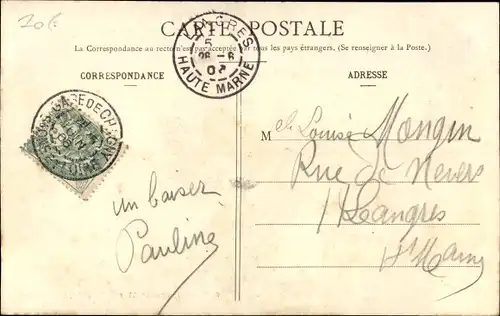 20f
CARTE POSTALE
La Correspondance au recto n'est pas acceptée par tous les pays étrangers. (Se renseigner à la Poste.)
CORRESPONDANCE
ADRESSE
LANGRES
5
26-6
07
HAUTE MARNE
GARE DE CH
Un baiser
Pauline
Mlle Louise Mongin
Rue de Nevers
Langres
Hte Marne